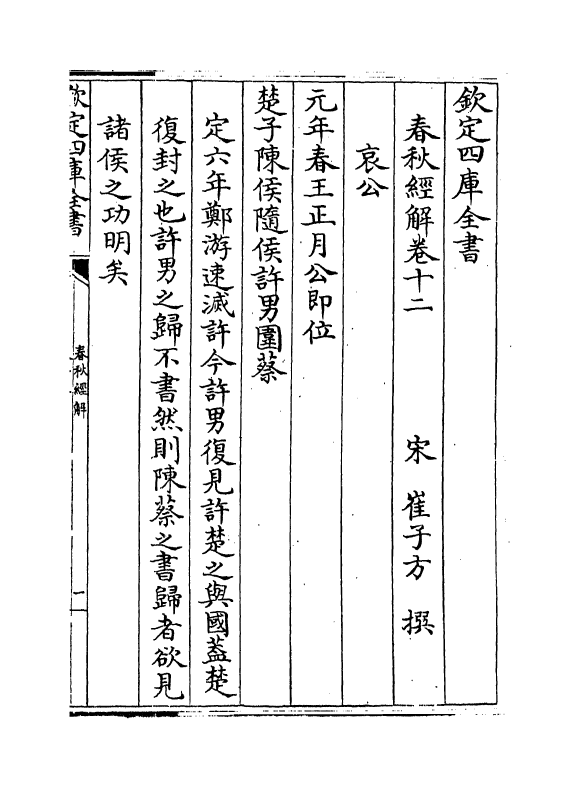 欽定四庫全書
春秋經解卷十二
宋 崔子方 撰
哀公
元年春王正月公即位
楚子陳侯隨侯許男圍蔡
定六年鄭游速滅許今許男復見許楚之與國蓋楚
復封之也許男之歸不書然則陳蔡之書歸者欲見
諸侯之功明矣
欽定四庫全書
春秋經解
一